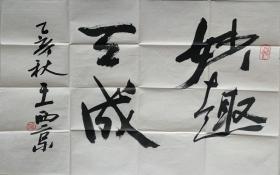 妙趣
天成
乙亥秋王西京